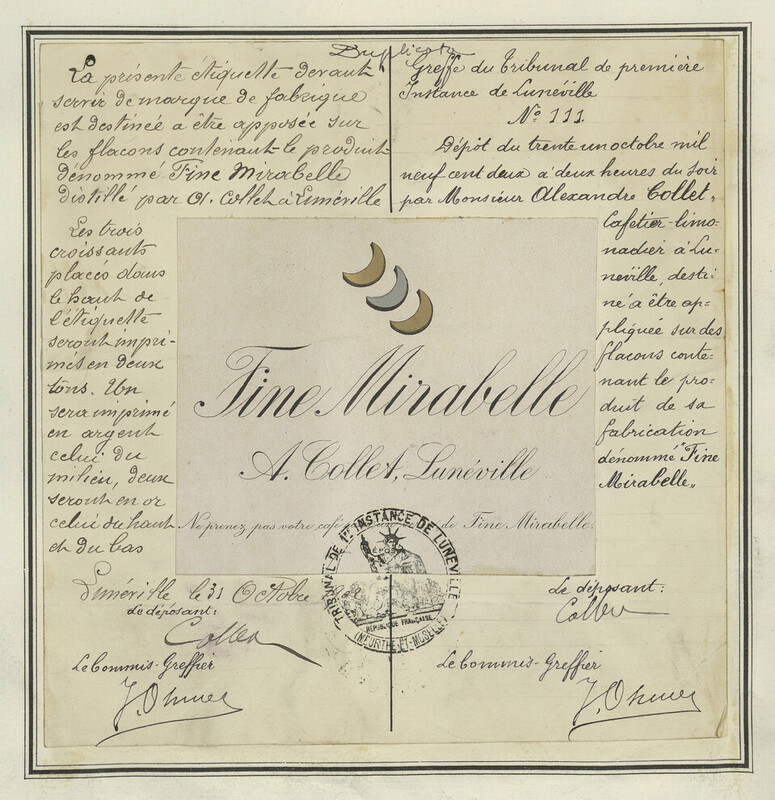 Duplicata
La présente étiquette devant
servir de marque de fabrique
est destinée a être apposée sur
les flacons contenant le produit
dénommé Fine Mirabelle
distillé par A. Collet à Lunéville
Les trois
croissants
placés dans
le haut de
l'étiquette
seront impri-
més en deux
tons. Un
sera imprimé
en argent
celui du
milieu, deux
seront en or
celui du haut
et du bas
Lunéville le 31 Octobre
Le déposant:
Collet
Le Commis-Greffier
Greffe du Tribunal de première
Instance de Lunéville
N° 111.
Dépôt du trente un octobre mil
neuf cent deux à deux heures du soir
par Monsieur Alexandre Collet,
Cafetier-limo-
nadier à Lu-
néville, desti-
né à être ap-
pliquée sur des
flacons conte-
nant le pro-
duit de sa
fabrication
dénommé "Fine
Mirabelle"
Fine Mirabelle
A. Collet, Lunéville
Ne prenez pas votre café de Fine Mirabelle.
TRIBUNAL DE 1RE INSTANCE DE LUNÉVILLE
RÉPUBLIQUE FRANÇAISE
(MEURTHE-ET-MOSELLE)
Le déposant:
Collet
Le Commis-Greffier